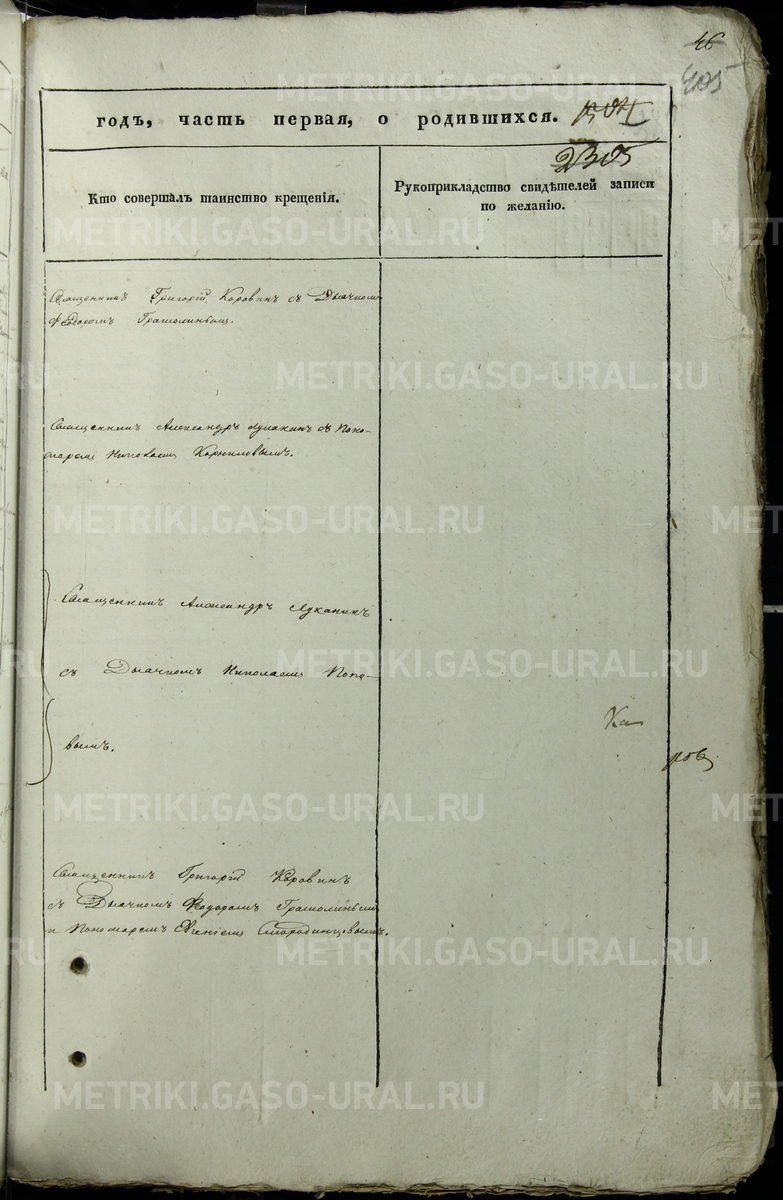 46
405
годъ, часть первая, о родившихся.
2305
Кто совершалъ таинство крещенія.
Рукоприкладство свидѣтелей записи
по желанію.
Священникъ Григорій Коровинъ съ Дьячкомъ
Ѳедоромъ
Священникъ Александръ Луканинъ съ Поно-
маремъ Николаемъ Корниловымъ.
Священникъ Александръ Луканинъ
съ Дьячкомъ Николаемъ Попо-
вымъ.
Священникъ Григорій Коровинъ
съ Дьячкомъ Ѳедоромъ
и Пономаремъ Евгеніемъ Стародинцовымъ.
METRIKI.GASO-URAL.RU
METRIKI.GASO-URAL.RU
METRIKI.GASO-URAL.RU
METRIKI.GASO-URAL.RU
METRIKI.GASO-URAL.RU
METRIKI.GASO-URAL.RU
METRIKI.GASO-URAL.RU
METRIKI.GASO-URAL.RU